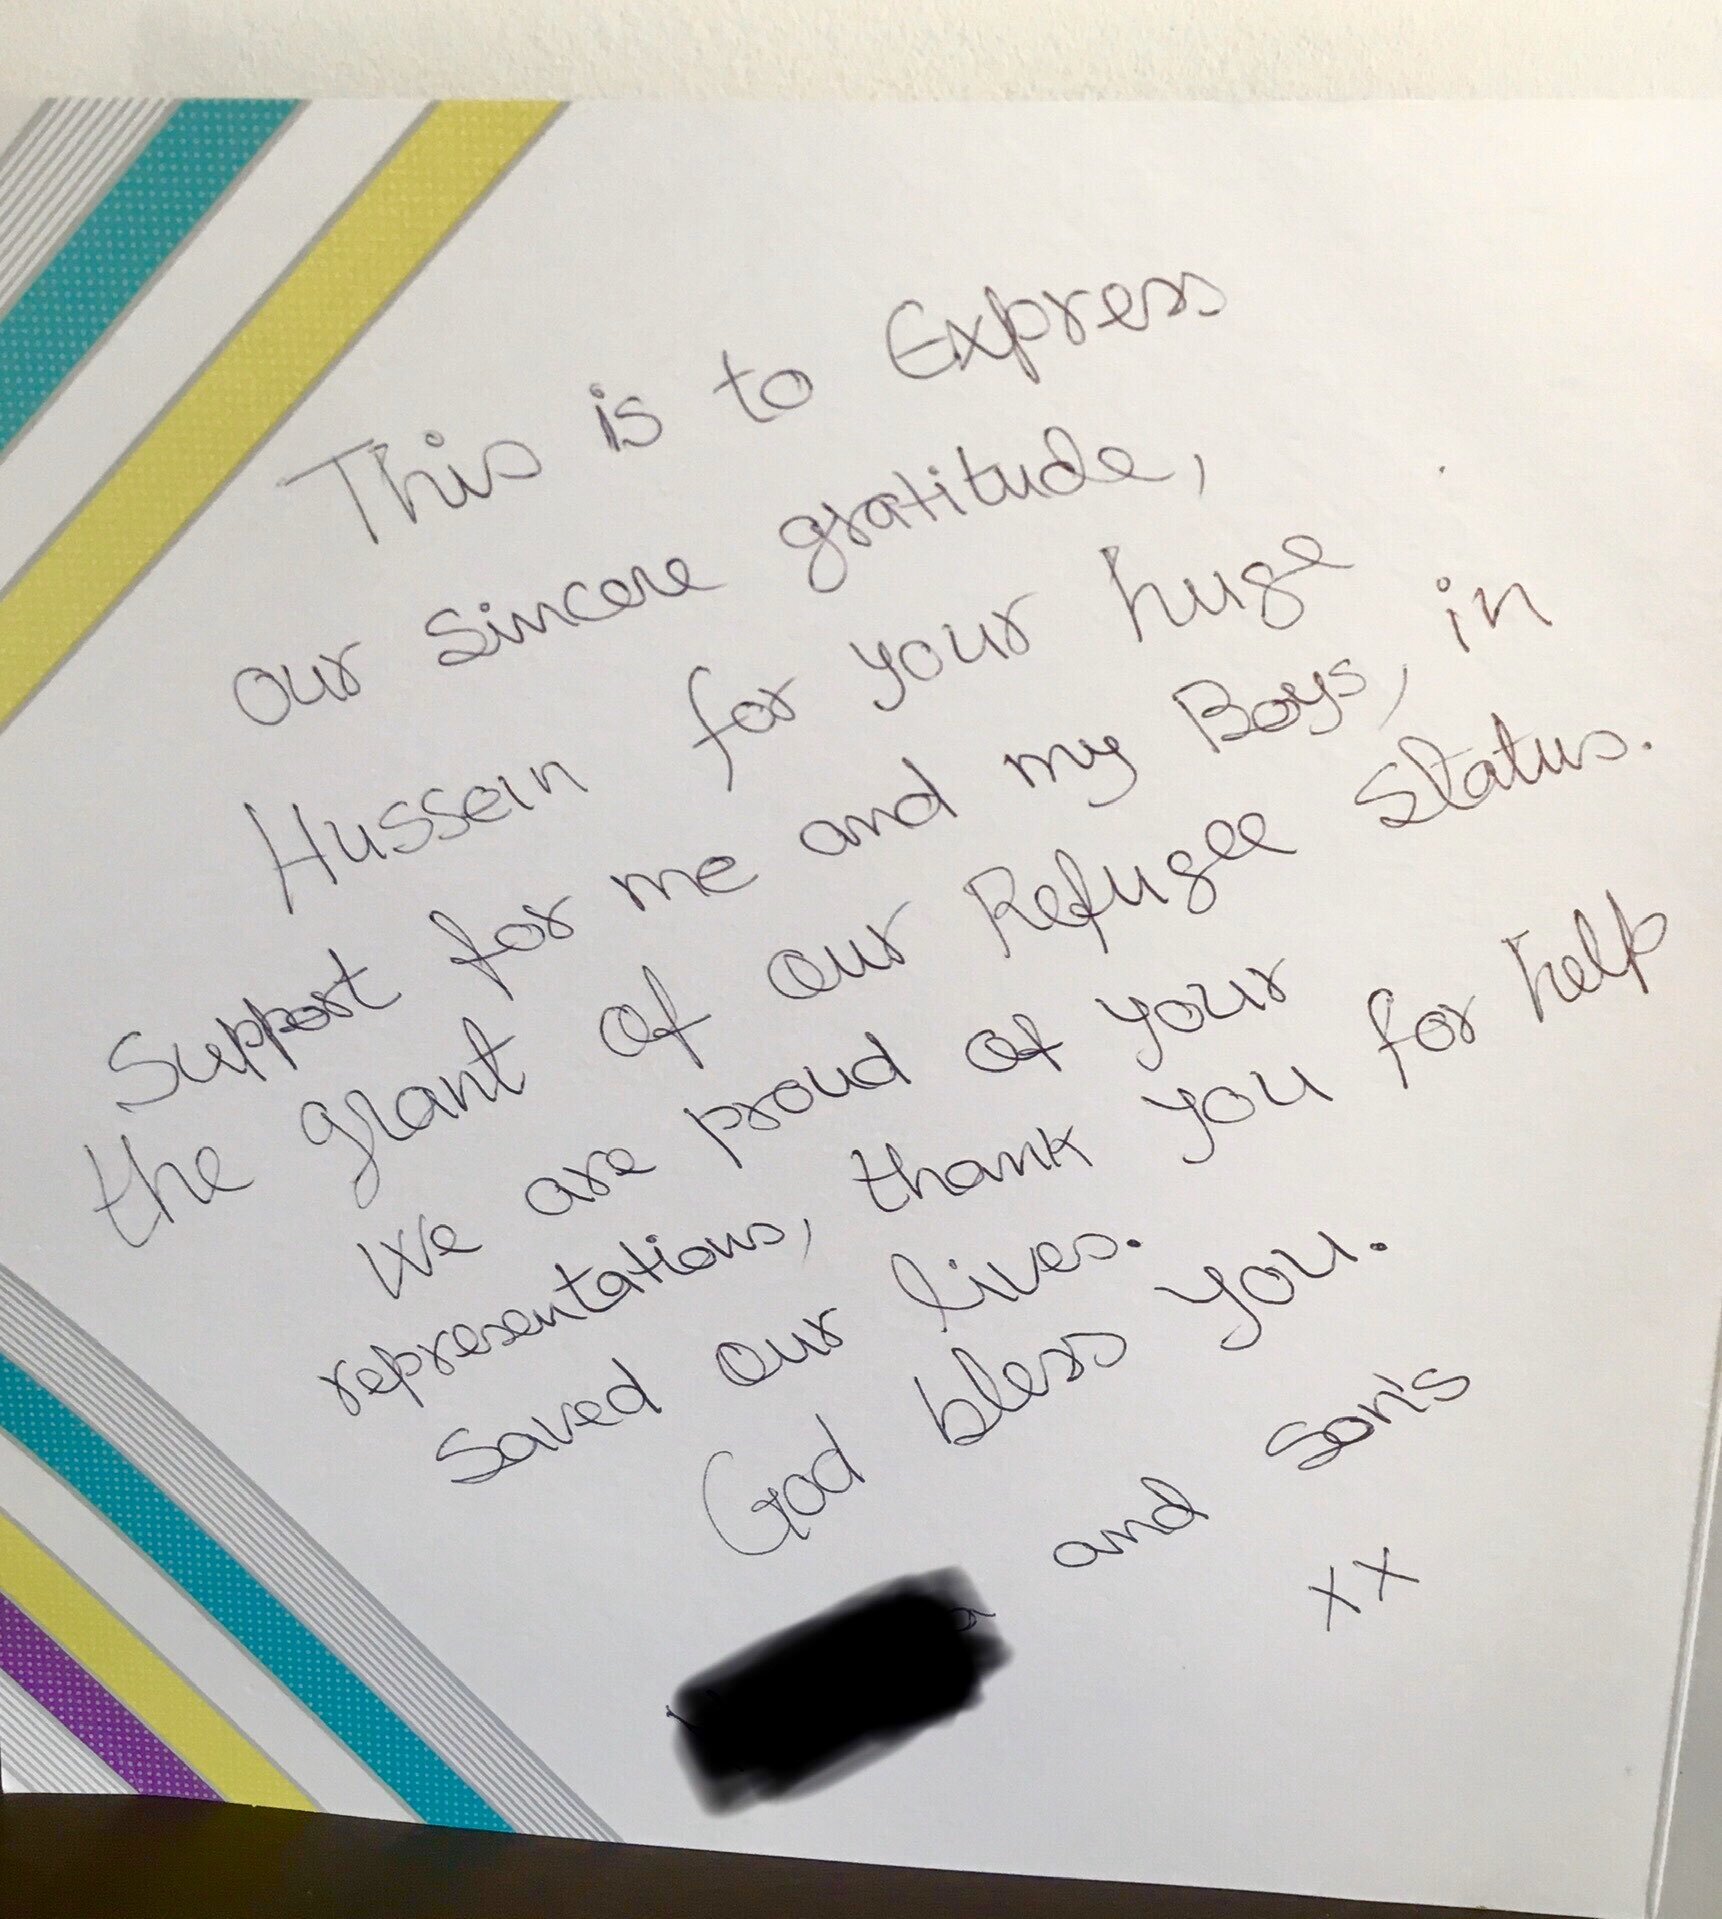 This is to Express
our sincere gratitude,
Hussein for your huge
Support for me and my Boys, in
the grant of our Refugee Status.
We are proud of your
representations, thank you for help
Saved our lives.
God bless you.
and Son's
xx